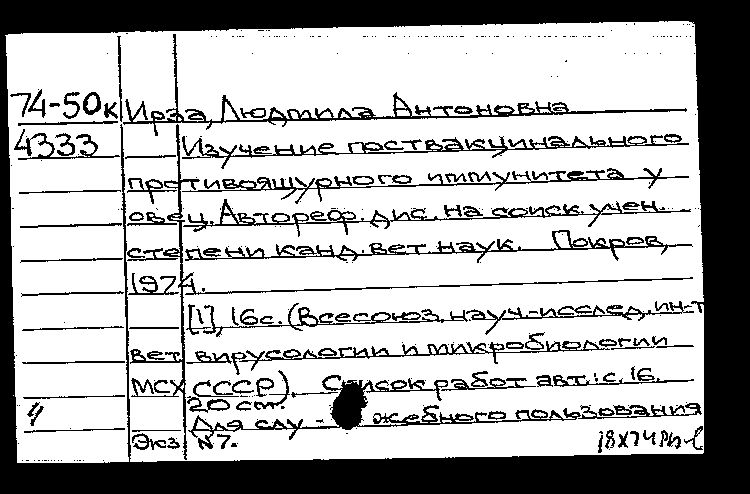 74-50к Ирза, Людмила Антоновна
4333 Изучение поствакцинального
противоящурного иммунитета у
овец. Автореф. дис. на соиск. учен.
степени канд. вет. наук. Покров,
1974.
[1], 16с. (Всесоюз. науч.-исслед. ин-т
вет. вирусологии и микробиологии
МСХ СССР). Список работ авт.: с. 16.
20 см.
Для слу - жебного пользования
Экз. №7.